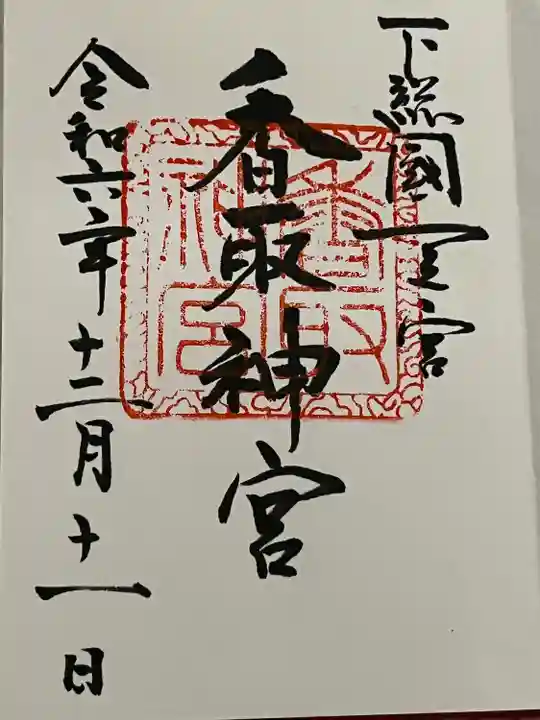 下総國一之宮
香取神宮
令和六年十二月十一日
香取神宮